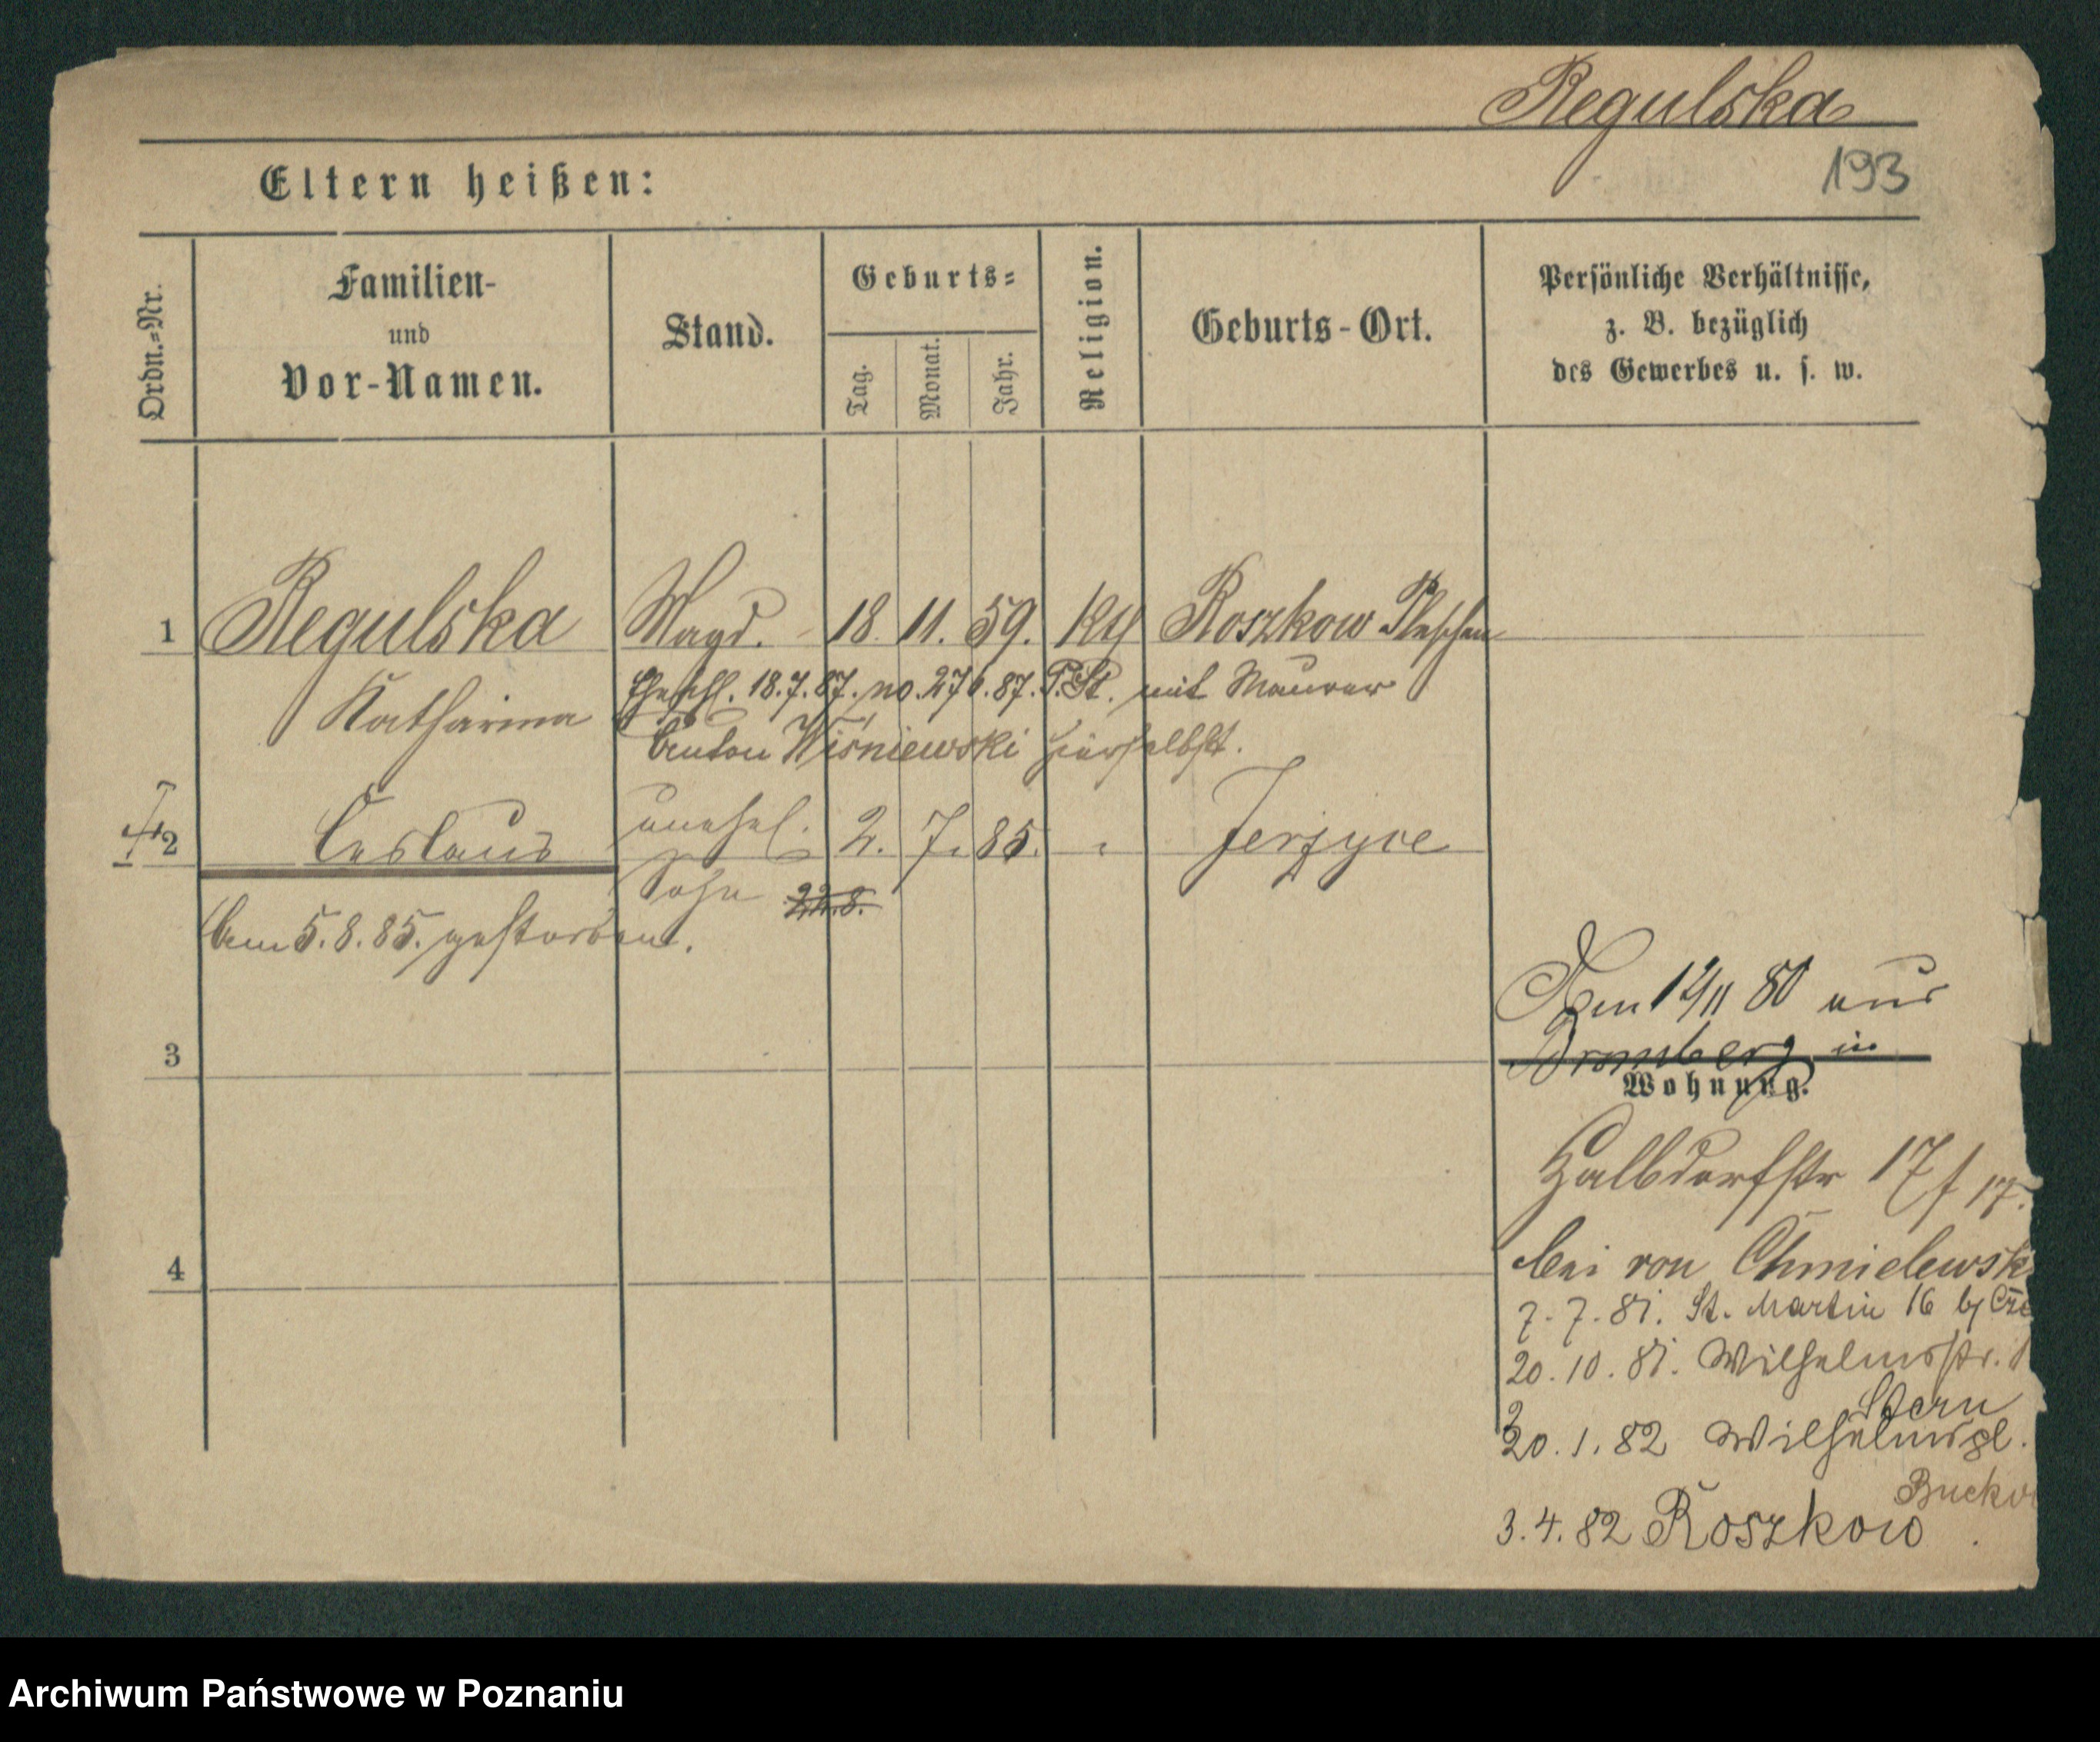 Regulska
193
Eltern heißen:
Ordn.=Nr.
Familien-
und
Vor-Namen.
Stand.
Geburts=
Tag.
Monat.
Jahr.
Religion.
Geburts-Ort.
Persönliche Verhältnisse,
z. B. bezüglich
des Gewerbes u. s. w.
1 Regulska Magd. 18. 11. 59. kth Roszkow Pleschen
Katharina
Eheschl. 18.7.87. no. 276.87. P.St. mit Maurer
Anton Wiśniewski hierselbst.
2 Ceslaus unehel. 2. 7. 85. " Jerzyce
Sohn 22.8.
Am 5.8.85. gestorben.
Den 12/11 80 aus
3 Bromberg in
Wohnung.
Halbdorfstr 17/17.
4 bei von Chmielewsk
7.7.81. St. Martin 16 bj
20.10.81. Wilhelmsstr.
Stern
20.1.82 Wilhelmspl.
3.4.82 Roszkow
Archiwum Państwowe w Poznaniu